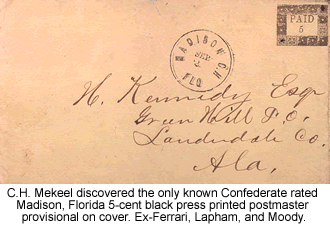 PAID
5
MADISON C.H.
SEP
2
FLO
H. Kennedy Esqr
Green Hill P.O.
Lauderdale Co.
Ala,
C.H. Mekeel discovered the only known Confederate rated
Madison, Florida 5-cent black press printed postmaster
provisional on cover. Ex-Ferrari, Lapham, and Moody.